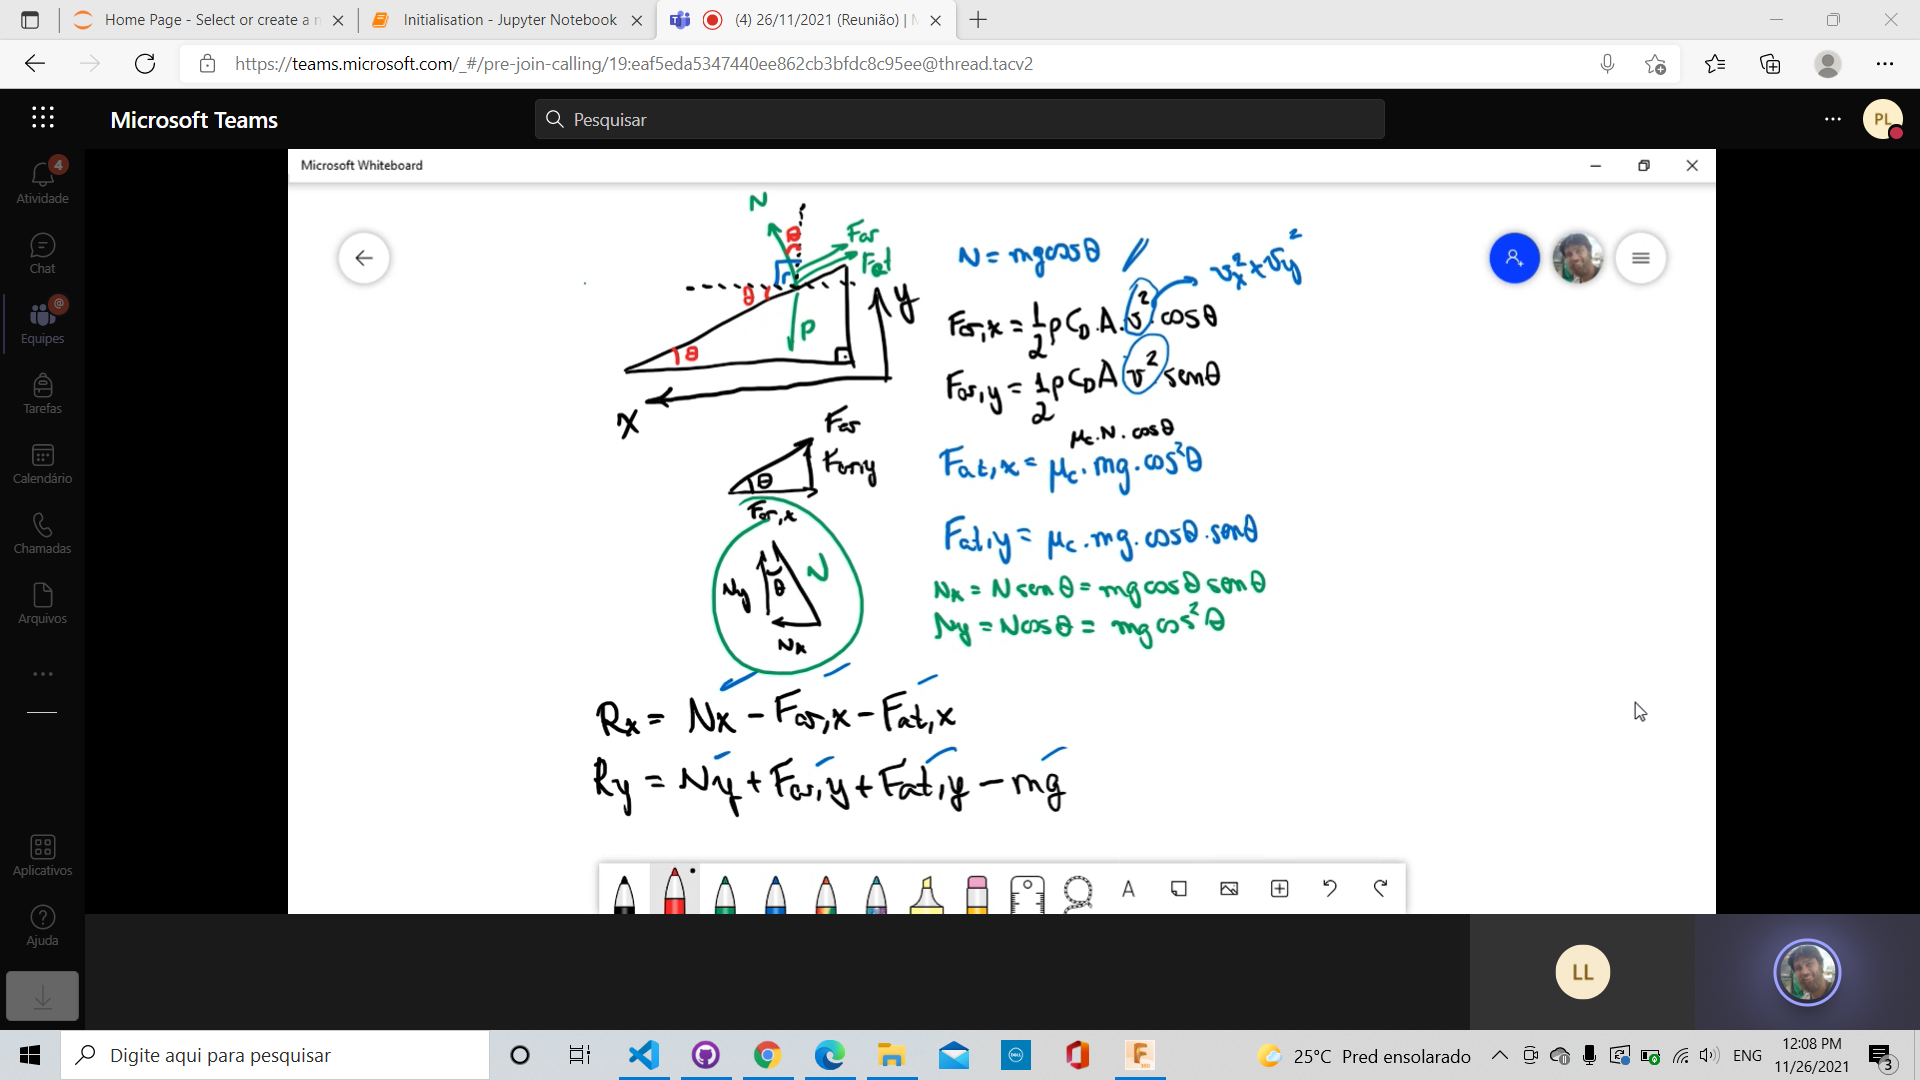 Home Page - Select or create a n
Initialisation - Jupyter Notebook
(4) 26/11/2021 (Reunião) | M
https://teams.microsoft.com/_#/pre-join-calling/19:eaf5eda5347440ee862cb3bfdc8c95ee@thread.tacv2
Microsoft Teams
Pesquisar
PL
4
Atividade
Chat
@
Equipes
Tarefas
Calendário
Chamadas
Arquivos
Aplicativos
Ajuda
Microsoft Whiteboard
N
θ
Far
Fat
θ
P
y
θ
x
N = mg cosθ
vx² + vy²
Far,x = 1/2 ρ CD . A . v² . cosθ
Far,y = 1/2 ρ CD A v² senθ
μc . N . cosθ
Fat,x = μc . mg . cos²θ
Fat,y = μc . mg . cosθ . senθ
Nx = N sen θ = mg cos θ sen θ
Ny = N cos θ = mg cos² θ
Far
Far,y
θ
Far,x
Ny
θ
N
Nx
Rx = Nx - Far,x - Fat,x
Ry = Ny + Far,y + Fat,y - mg
A
LL
Digite aqui para pesquisar
25°C Pred ensolarado
ENG
12:08 PM
11/26/2021
3